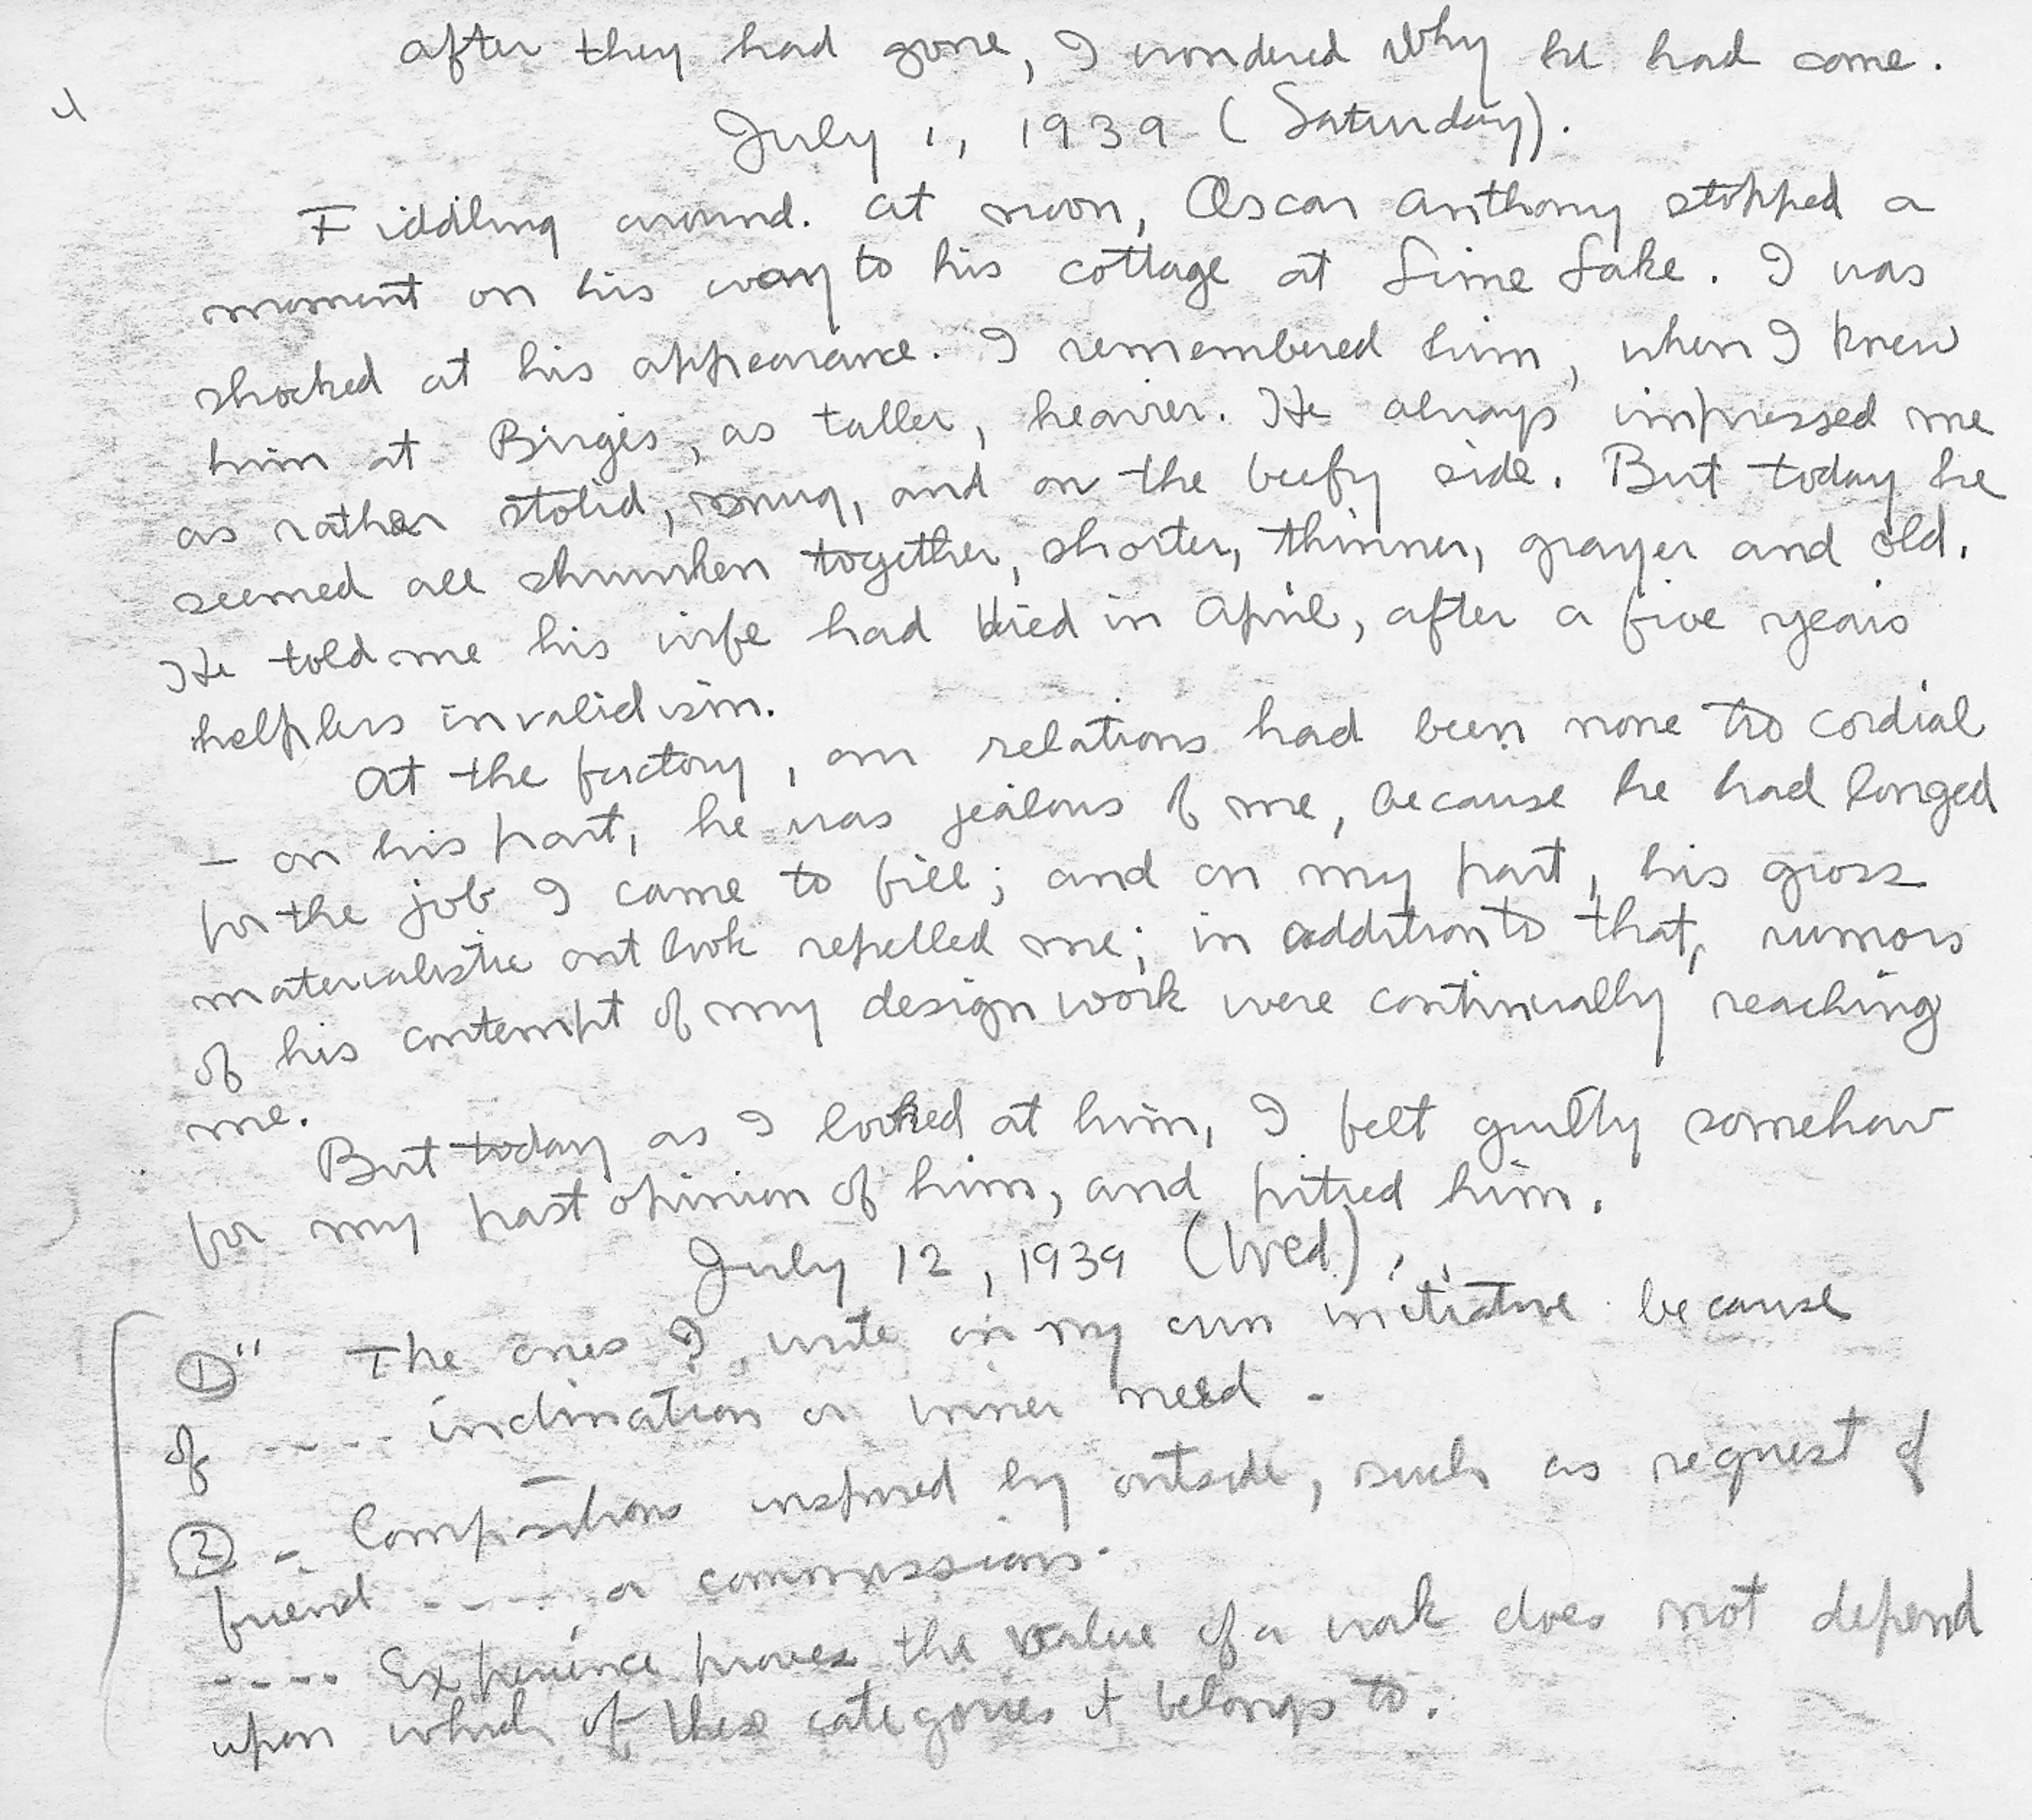 after they had gone, I wondered why he had come.
July 1, 1939 (Saturday).
Fiddling around. At noon, Oscar Anthony stopped a
moment on his way to his cottage at Lime Lake. I was
shocked at his appearance. I remembered him, when I knew
him at Birges, as taller, heavier. He always impressed me
as rather stolid, smug, and on the beefy side. But today he
seemed all shrunken together, shorter, thinner, grayer and old.
He told me his wife had died in April, after a five years
helpless invalidism.
At the factory, our relations had been none too cordial
– on his part, he was jealous of me, because he had longed
for the job I came to fill; and on my part, his gross
materialistic outlook repelled me; in addition to that, rumors
of his contempt of my design work were continually reaching
me.
But today as I looked at him, I felt guilty somehow
for my past opinion of him, and pitied him.
July 12, 1939 (Wed).
① " The ones I write on my own initiative because
of ----- inclination or inner need -
② - Compositions inspired by outside, such as request of
friend ----- or commissions.
---- Experience proves the value of a work does not depend
upon which of these categories it belongs to.